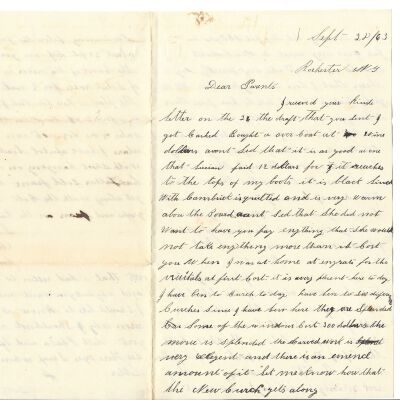 Sept 28/63
Rochester N Y
Dear Parents
I receved your kinde
letter on the 26 the draft that you sent I
got Cashed Bought a over Coat it nine
dollars aunt Sed that it is as good as one
that Susian paid 12 dollars for it reaches
to the tops of my boots it is black lined
With Cambrick is quilted and is very warm
abou the Board aunt Sed that She did not
Want to have you pay enything that She would
not take enything more than it Cost
you When I was at home at eny rate for the
vicitals at first Cost it is very plesent here to day
I have bin to Church to day have bin to Six differe
Curches Since I have bin here they are Splended
Some of the windows Cost 300 dollars the
music is Splended the Carved work is
very elegent and there is an emence
amount of it let me know how that
the New Curch gets along